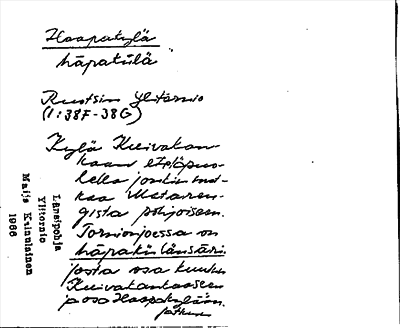 Haapakylä
hāpakülä
Ruotsin Ylitornio
(1:38F-38G)
Kylä Kuivakan-
kaan eteläpuo-
lella jonkin mat-
kaa Mataren-
gista pohjoiseen.
Tornionjoessa on
hāpakün länsäri,
josta osa kuuluu
Kuivakankaaseen
ja osa Haapakylään.
jatkuu
Länsipohja
Ylitornio
Maija Kainulainen
1966